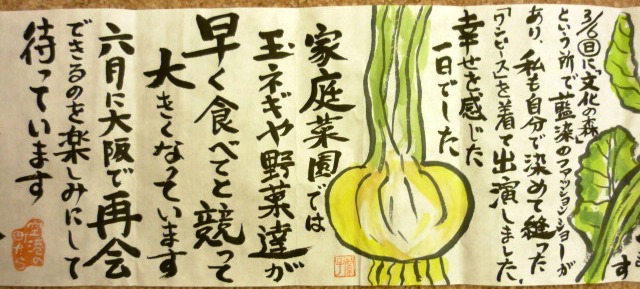 3/6(日)に「文化の森」
という所で藍染のファッションショーが
あり、私も自分で染めて縫った
「ワンピース」を着て出演しました。
幸せを感じた
一日でした。
家庭菜園では
玉ネギや野菜達が
早く食べてと競って
大きくなっています
六月に大阪で再会
できるのを楽しみにして
待っています